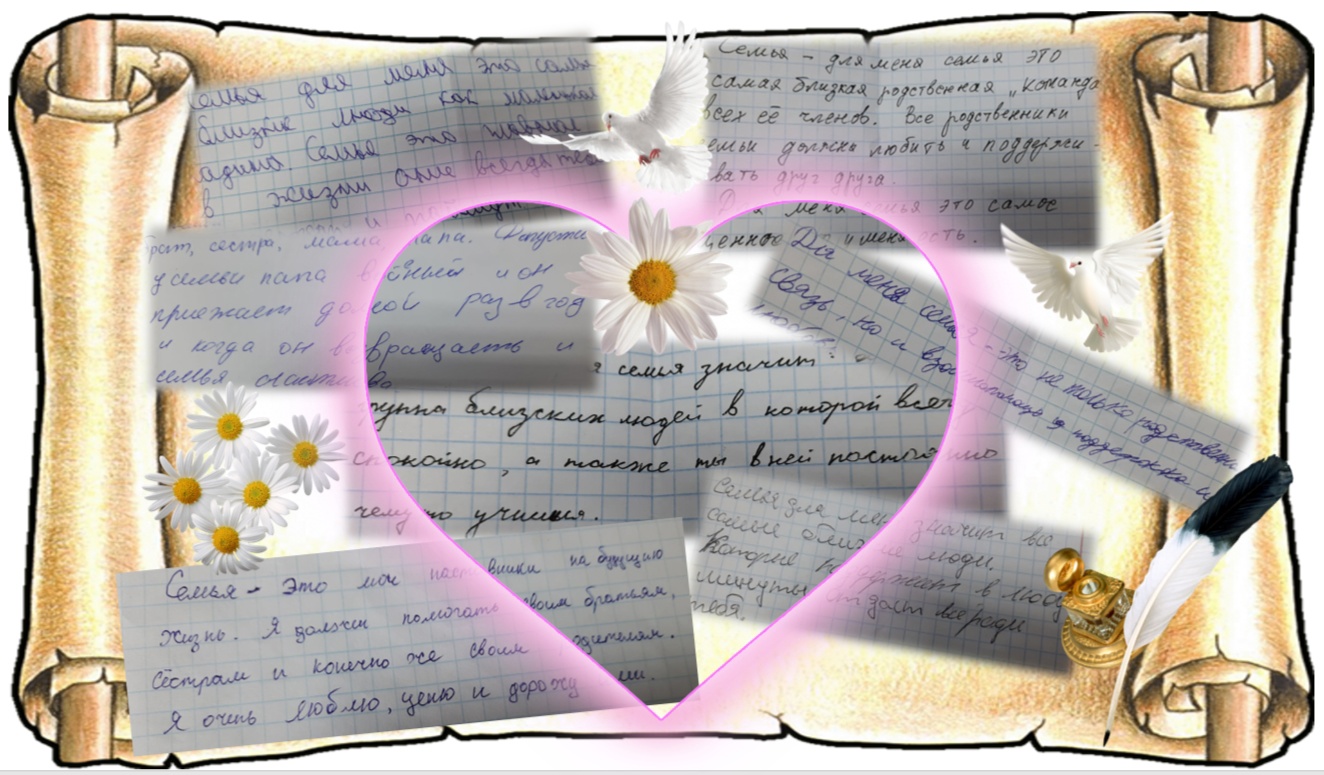 семья для меня это самые
близкие люди как
Семья это
в жизни они всегда
Семья – для меня семья это
самая близкая родственная „команда
всех её членов. Все родственники
емьи должны любить и поддержи-
вать друг друга.
Для меня семья это самое
ценное
рат, сестра, мама папа. Допустим
у семьи папа военный и он
приежает домой раз в год
и когда он возвращаеть и
семья
Для меня семья – это не только родственн
связь, но и взаимопомощь и поддержка
я семья значит
группа близских людей в которой всег
спокойно, а также ты в ней постоянно
чему то учишся.
Семья для мен значит все
самые близкие люди.
Которые в
минуты
тебя.
Семья – Это мои наставники на будущию
жизнь. Я должен помогать своим братьям,
сёстрам и конечно же своим родителям.
Я очень люблю, ценю и дорожу ими.